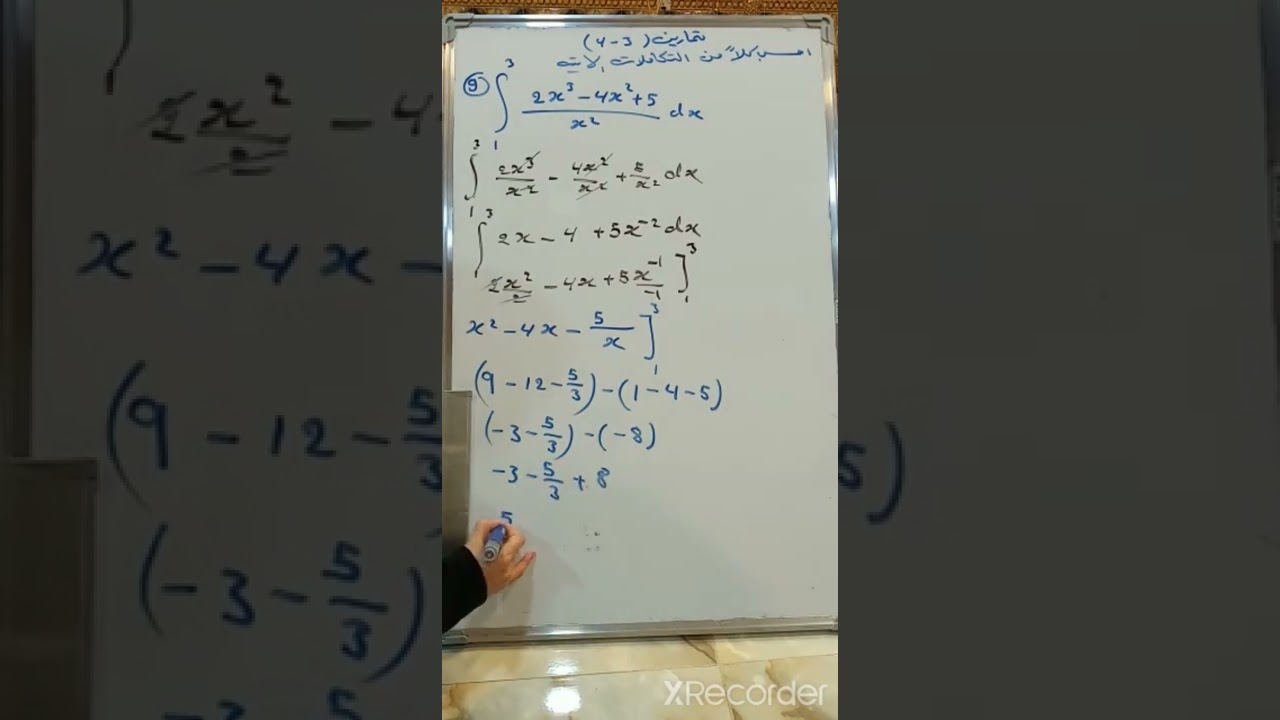 تمارين (3-4)
احسب كلاً من التكاملات الآتية
9 ∫₁³ (2x³ - 4x² + 5)/x² dx
∫₁³ 2x³/x² - 4x²/x² + 5/x² dx
∫₁³ 2x - 4 + 5x⁻² dx
2x²/2 - 4x + 5x⁻¹/-1 ]₁³
x² - 4x - 5/x ]₁³
(9 - 12 - 5/3) - (1 - 4 - 5)
(-3 - 5/3) - (-8)
-3 - 5/3 + 8
5
XRecorder